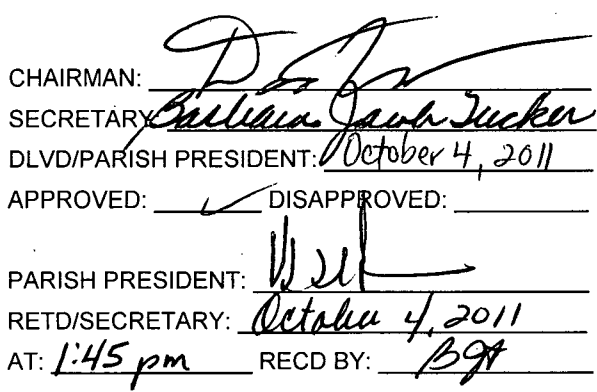 CHAIRMAN:
SECRETARY Barbara Jacob Tucker
DLVD/PARISH PRESIDENT: October 4, 2011
APPROVED: ✓ DISAPPROVED:
PARISH PRESIDENT:
RETD/SECRETARY: October 4, 2011
AT: 1:45 pm RECD BY: BJT